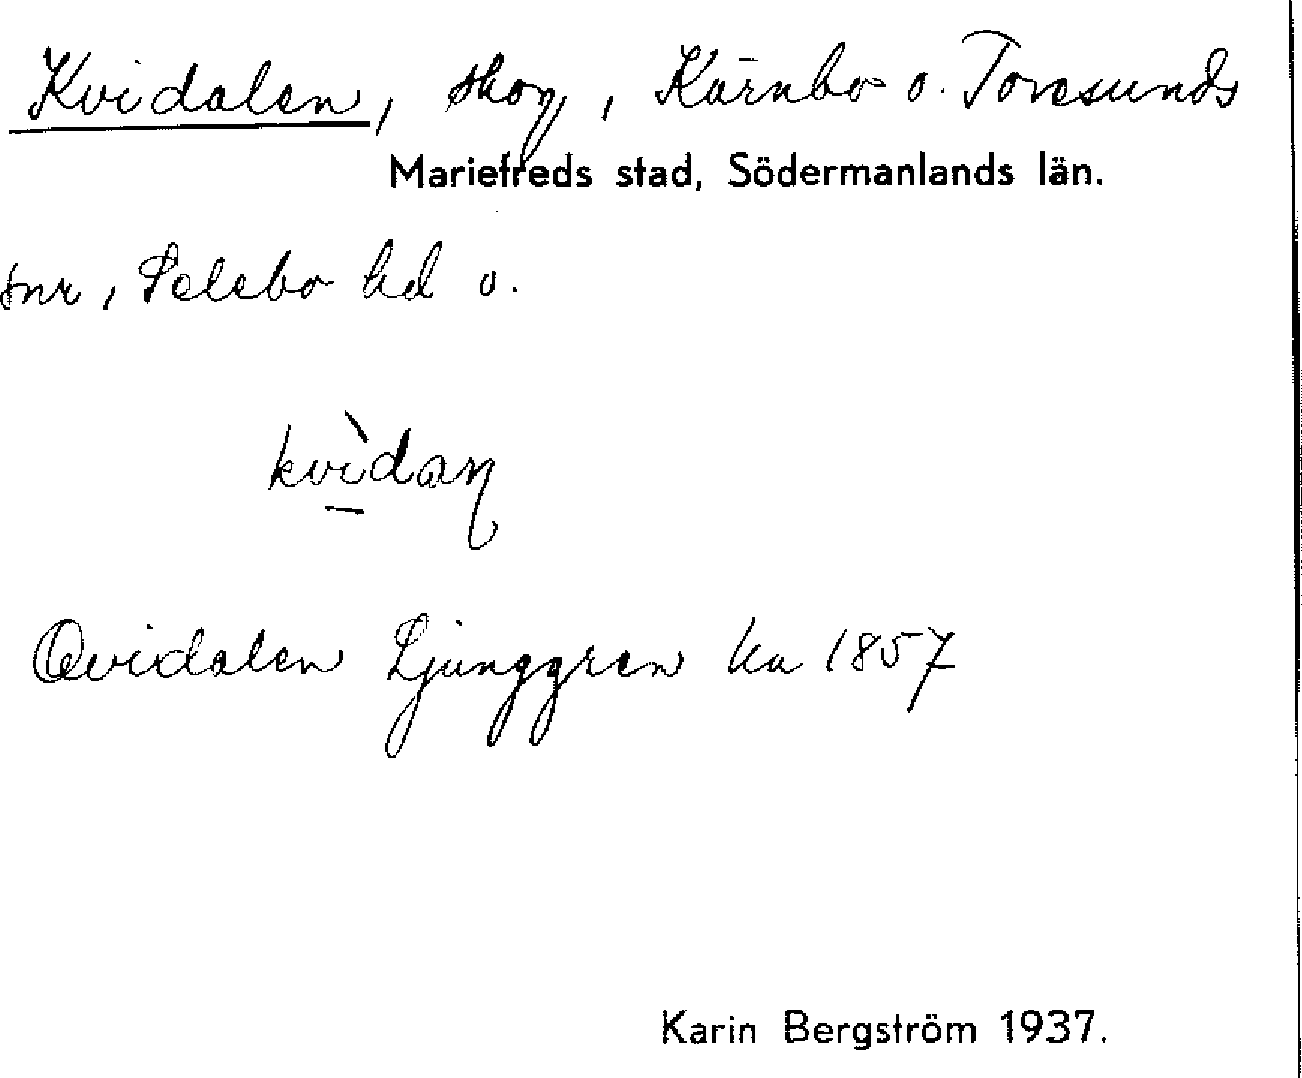 Kvidalen, skog, Kärnbo o. Toresunds
Mariefreds stad, Södermanlands län.
snr, Selebo hd o.
kvìdaɳ
Qvidalen Ljunggren ka 1857
Karin Bergström 1937.